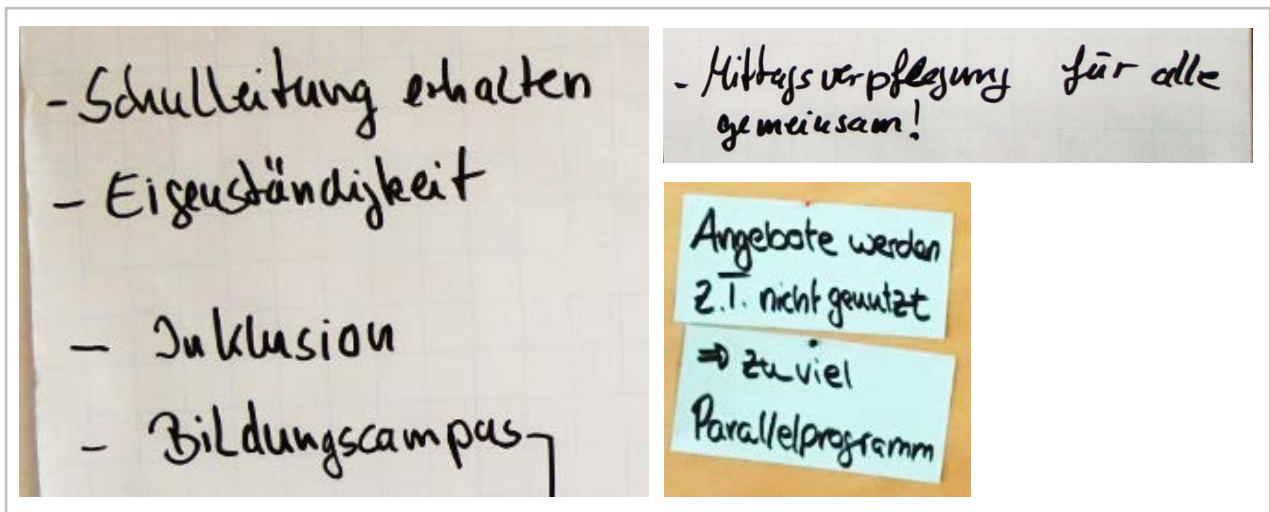 - Schulleitung erhalten
- Eigenständigkeit
- Inklusion
- Bildungscampus
- Mittagsverpflegung für alle
gemeinsam!
Angebote werden
z.T. nicht genutzt
⇒ zu viel
Parallelprogramm